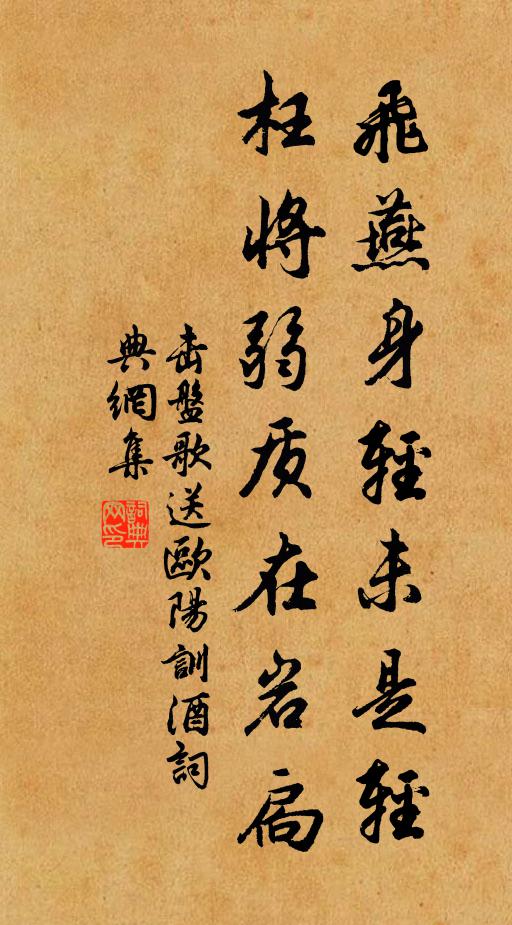 飛燕身輕未是輕
枉將弱质在岩扃
击盤歌送歐陽訓酒詞
典網集
詞典
网印